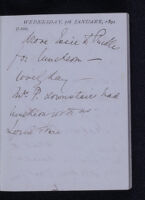 WEDNESDAY, 7TH JANUARY, 1891
More Susie & Puck
for luncheon —
lovely day —
Mr P. downstairs had
luncheon with us
Louis there